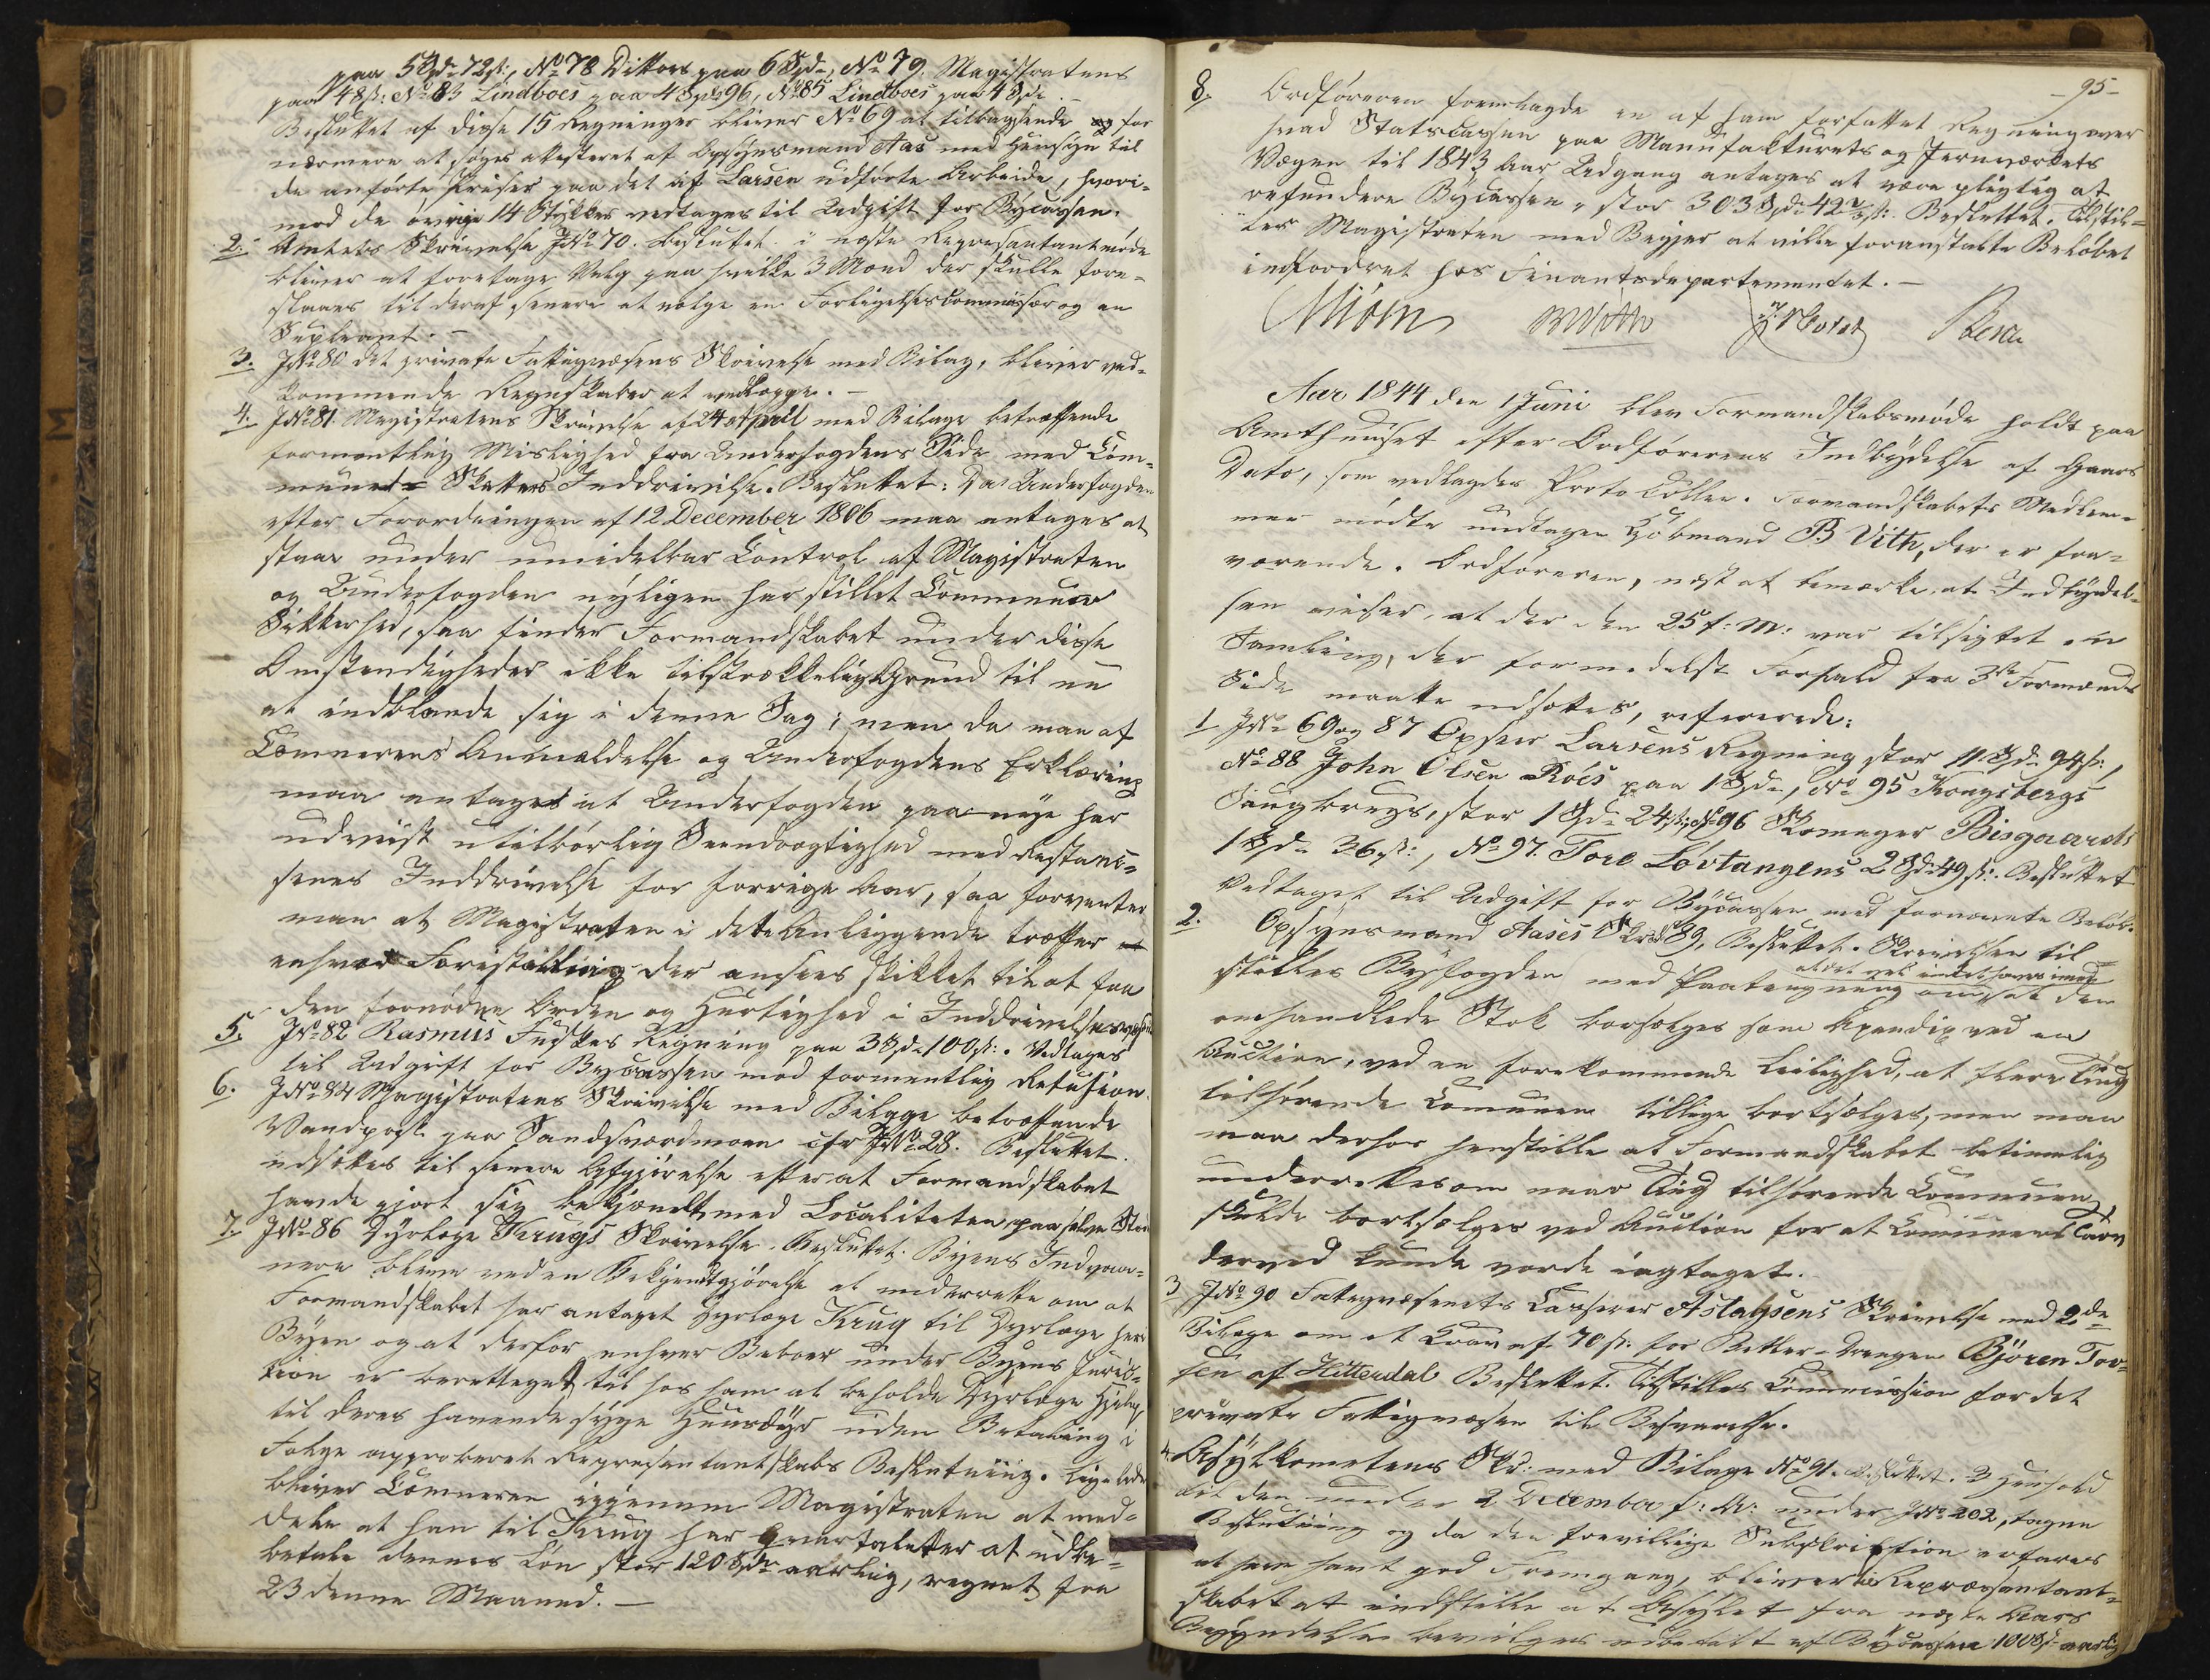 paa 5 Spd 72 s:, No 78 Dittos paa 6 Spd, No 79, Magistratens
paa 48 s: No 83 Lindboes paa 4 Spd 96, No 85 Lindboes paa 4 Spd. –
Besluttet af disse 15 Regninger bliver No 69 at tilbagesende og for
nærmere at søges attesteret af Opsynsmand Aas med Hensyn til
de anførte Priser paa det af Larsen udførte Arbeide, hvori=
mod de øvrige 14 Stykker vedtages til Udgift for Bycassen.
2. Amtets Skrivelse JNo 70. Besluttet i næste Repræsentantmøde
bliver at foretage Valg paa hvilke 3 Mænd der skulle fore=
slaaes til deraf senere at vælge en Forligelsescommissær og en
Supleant. –
3. JNo 80 det private Fattigvæsens Skrivelse med Bilag, bliver ved=
kommende Regnskaber at vedlægge. –
4. JNo 81. Magistratens Skrivelse af 24 April med Bilage betræffende
formentlig Mislighed fra Underfogdens Side med Com=
mune= Skatters Inddrivelse. Besluttet: Da Underfogden
efter Forordningen af 12 December 1806 maa antages at
staae under umidelbar Control af Magistraten
og Underfogden nyligen har stillet Communen
Sikkerhed, saa finder Formandskabet under disse
Omstændigheder ikke tilstrækkelig Grund til nu
at indblande sig i denne Sag; men da man af
Cæmnerens Anmældelse og Underfogdens Erklæring
maa antages at Underfogden paa nye har
udviist utilbørlig Seendrægtighed med Restanc=
sernes Inddrivelse for forrige Aar, saa forventer
man at Magistraten i dette Anliggende træffer
enhver Forestilling der ansees skikket til at faa
den fornødne Orden og Hurtighed i Inddrivelsesvæsenet
5. JNo 82 Rasmus Fuskes Regning paa 3 Spd 100 s:. Vedtages
til Udgift for Bycassen mod formentlig Refusion.
6. JNo 84 Magistratens Skrivelse med Bilage betræffende
Vandpost paa Sandsværdmoen cfr JNo 28. Besluttet.
udsættes til senere Afgjørelse efterat Formandskabet
havde gjort sig bekjændt med Localiteten paa selve Stedet
7. JNo 86 Dyrlæge Krugs Skrivelse. Besluttet. Byens Indvaa=
nere bliver ved en Bekjendtgjørelse at underrette om at
Formandskabet har antaget Dyrlæge Krug til Dyrlæge her i
Byen og at derfor enhver Beboer under Byens Juris=
tion er berettiget til hos ham at beholde Dyrlæge Hjelp
til deres havende syge Huusdyr uden Betaling i
Følge approberet Repræsentantskabs Beslutning. Ligeledes
bliver Cæmneren igjennem Magistraten at med=
dele at han til Krug har qvartaletter at udbe=
tale dennes Løn stor 120 Spd aarlig, regnet fra
23 denne Maaned. –
–95–
8. Ordføreren fremlagde en af ham forfattet Regning over
hvad Statscassen paa Manufakturets og Jernværkets
Vægne til 1843 Aars Udgang antages at være pligtig at
refundere Bycassen, stor 303 Spd 42 ½ s:. Besluttet. Tilstil=
les Magistraten med Begjer at ville foranstalte Beløbet
indfordret hos Finantsdepartementet. –
Aar 1844 den 1 Juni blev Formandskabsmøde holdt paa
Amthuuset efter Ordførerens Indbydelse af Gaars
Dato, som vedlagdes Protocollen. Formandskabets Medlem=
mer mødte undtagen Kjøbmand B Vith, der er fra=
værende. Ordføreren, næst at bemærke, at Indbydel=
sen viser, at der den 25 f: M: var tilsigtet en
Samling, der formedelst Forfald fra 3de Formænds
Side maatte udsættes, refererede:
1 JNo 69 og 87 Opseer Larsens Regning stor 11 Spd 94 s:,
No 88 John Olsen Roes paa 1 Spd, No 95 Kongsbergs
Saugbrugs, stor 1 Spd 24 s:, No 96 Skomager Bisgaards
1 Spd 36 s:, No 97. Tore Løvtangens 2 Spd 49 s:. Besluttet
vedtaget til Udgift for Bycassen med fornævnte Beløb.
2. Opsynsmand Aases Skr. 89, Besluttet. Skrivelsen til
stilles Byfogden med Paategning
at det vel intet haves imod
om at den
omhandlede Stok borsælges som Apendix ved en
Auction, ved en forekommende Leilighed, at flere Ting
tilhørende Comunen tillige bortsælges, men man
maa derhos henstille at Formandskabet betimelig
underrettes om naar Ting tilhørende Communen
skulde bortsælges ved Auction for at Comunens Tarv
derved kunde vorde iagtaget.
3 JNo 90 Fattigvæsenets Casserer Aslagsens Skrivelse med 2de
Bilage om et Krav af 70 s: for Betler-Drengen Bjøren Tov=
sen af Hitterdal Besluttet. Tilstilles Commission for det
private Fattigvæsen til Besvarelse.
4. Asylkometens Skr: med Bilage No 91. Besluttet. I Henhold
til den under 2 December f: A: under JNo 202, tagne
Beslutning og da den frevillige Subskription erfares
at have havt god Fremgang, bliver til Repræsentant=
skabet at indstille at Asylet fra næste Aars
Begyndelse bevilges udbetalt af Bycassen 100 Spd aarlig